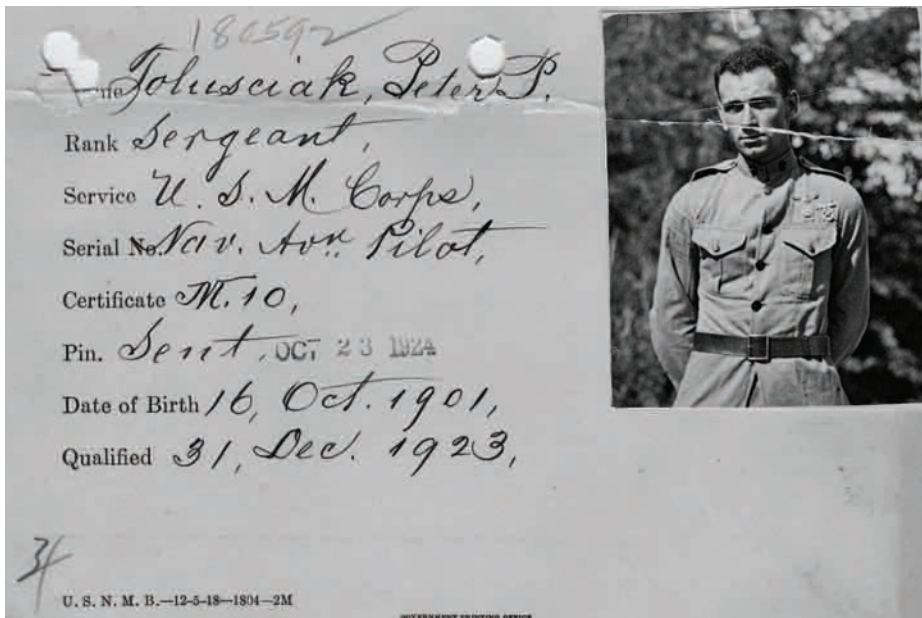 180592
me Tolusciak, Peter P.
Rank Sergeant,
Service U. S. M. Corps,
Serial No. Nav. Avn. Pilot,
Certificate M. 10,
Pin. Sent, OCT 23 1924
Date of Birth 16, Oct. 1901,
Qualified 31, Dec. 1923,
34
U. S. N. M. B.—12-5-18—1804—2M
GOVERNMENT PRINTING OFFICE